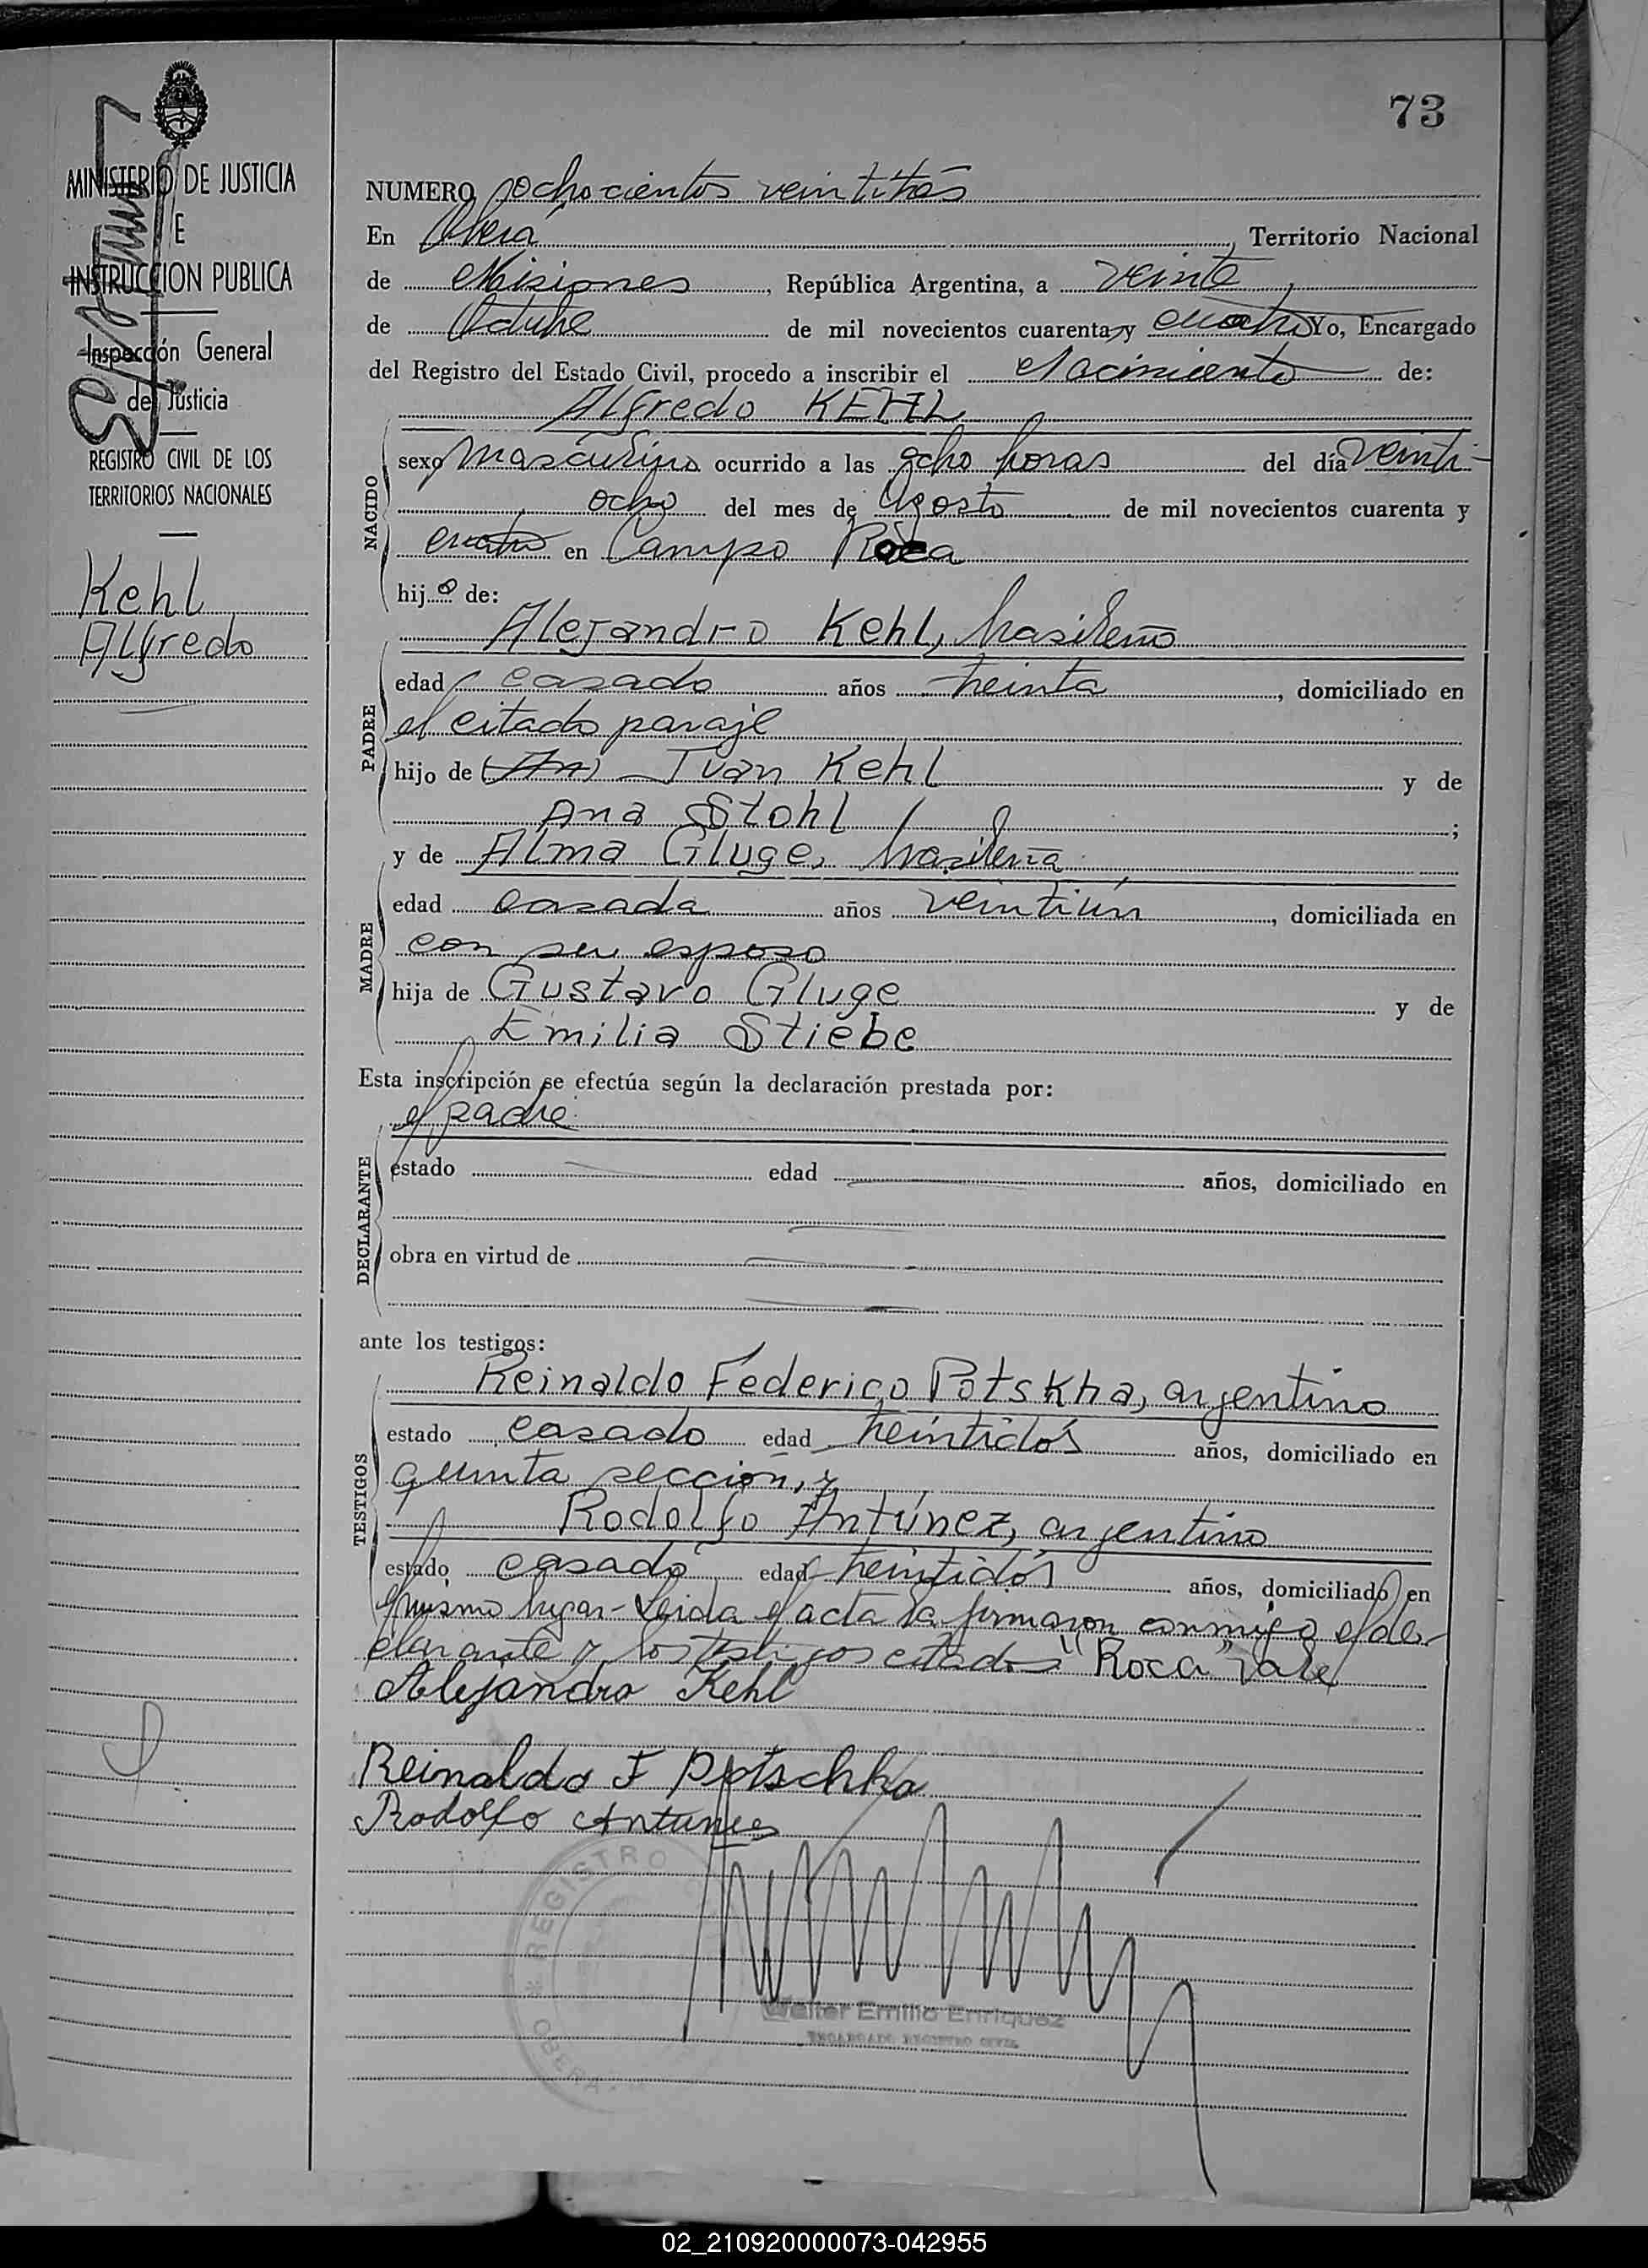 73
MINISTERIO DE JUSTICIA
E
INSTRUCCION PUBLICA
Inspección General
de Justicia
REGISTRO CIVIL DE LOS
TERRITORIOS NACIONALES
Kehl
Alfredo
NUMERO ochocientos veintitrés
En Oberá, Territorio Nacional
de Misiones, República Argentina, a veinte
de Octubre de mil novecientos cuarenta y cuatro Yo, Encargado
del Registro del Estado Civil, procedo a inscribir el Nacimiento de:
Alfredo KEHL
NACIDO
sexo masculino ocurrido a las ocho horas del día veinti-
ocho del mes de Agosto de mil novecientos cuarenta y
cuatro en Campo Roca
hijo de:
Alejandro Kehl, brasileño
PADRE
edad casado años treinta, domiciliado en
el citado paraje
hijo de Ivan Kehl y de
Ana Stohl ;
y de Alma Gluge, brasileña
MADRE
edad casada años veintiún, domiciliada en
con su esposo
hija de Gustavo Gluge y de
Emilia Stiebe
Esta inscripción se efectúa según la declaración prestada por:
el padre
DECLARANTE
estado edad años, domiciliado en
obra en virtud de
ante los testigos:
Reinaldo Federico Potskha, argentino
TESTIGOS
estado casado edad treintidós años, domiciliado en
quinta sección, y
Rodolfo Antúnez, argentino
estado casado edad treintidós años, domiciliado en
el mismo lugar - Leida el acta la firmaron conmigo el de-
clarante y los testigos citados "Roca" vale
Alejandro Kehl
Reinaldo F Potschka
Rodolfo Antunes
REGISTRO
OBERA
Walter Emilio Enriquez
ENCARGADO REGISTRO CIVIL
02_210920000073-042955